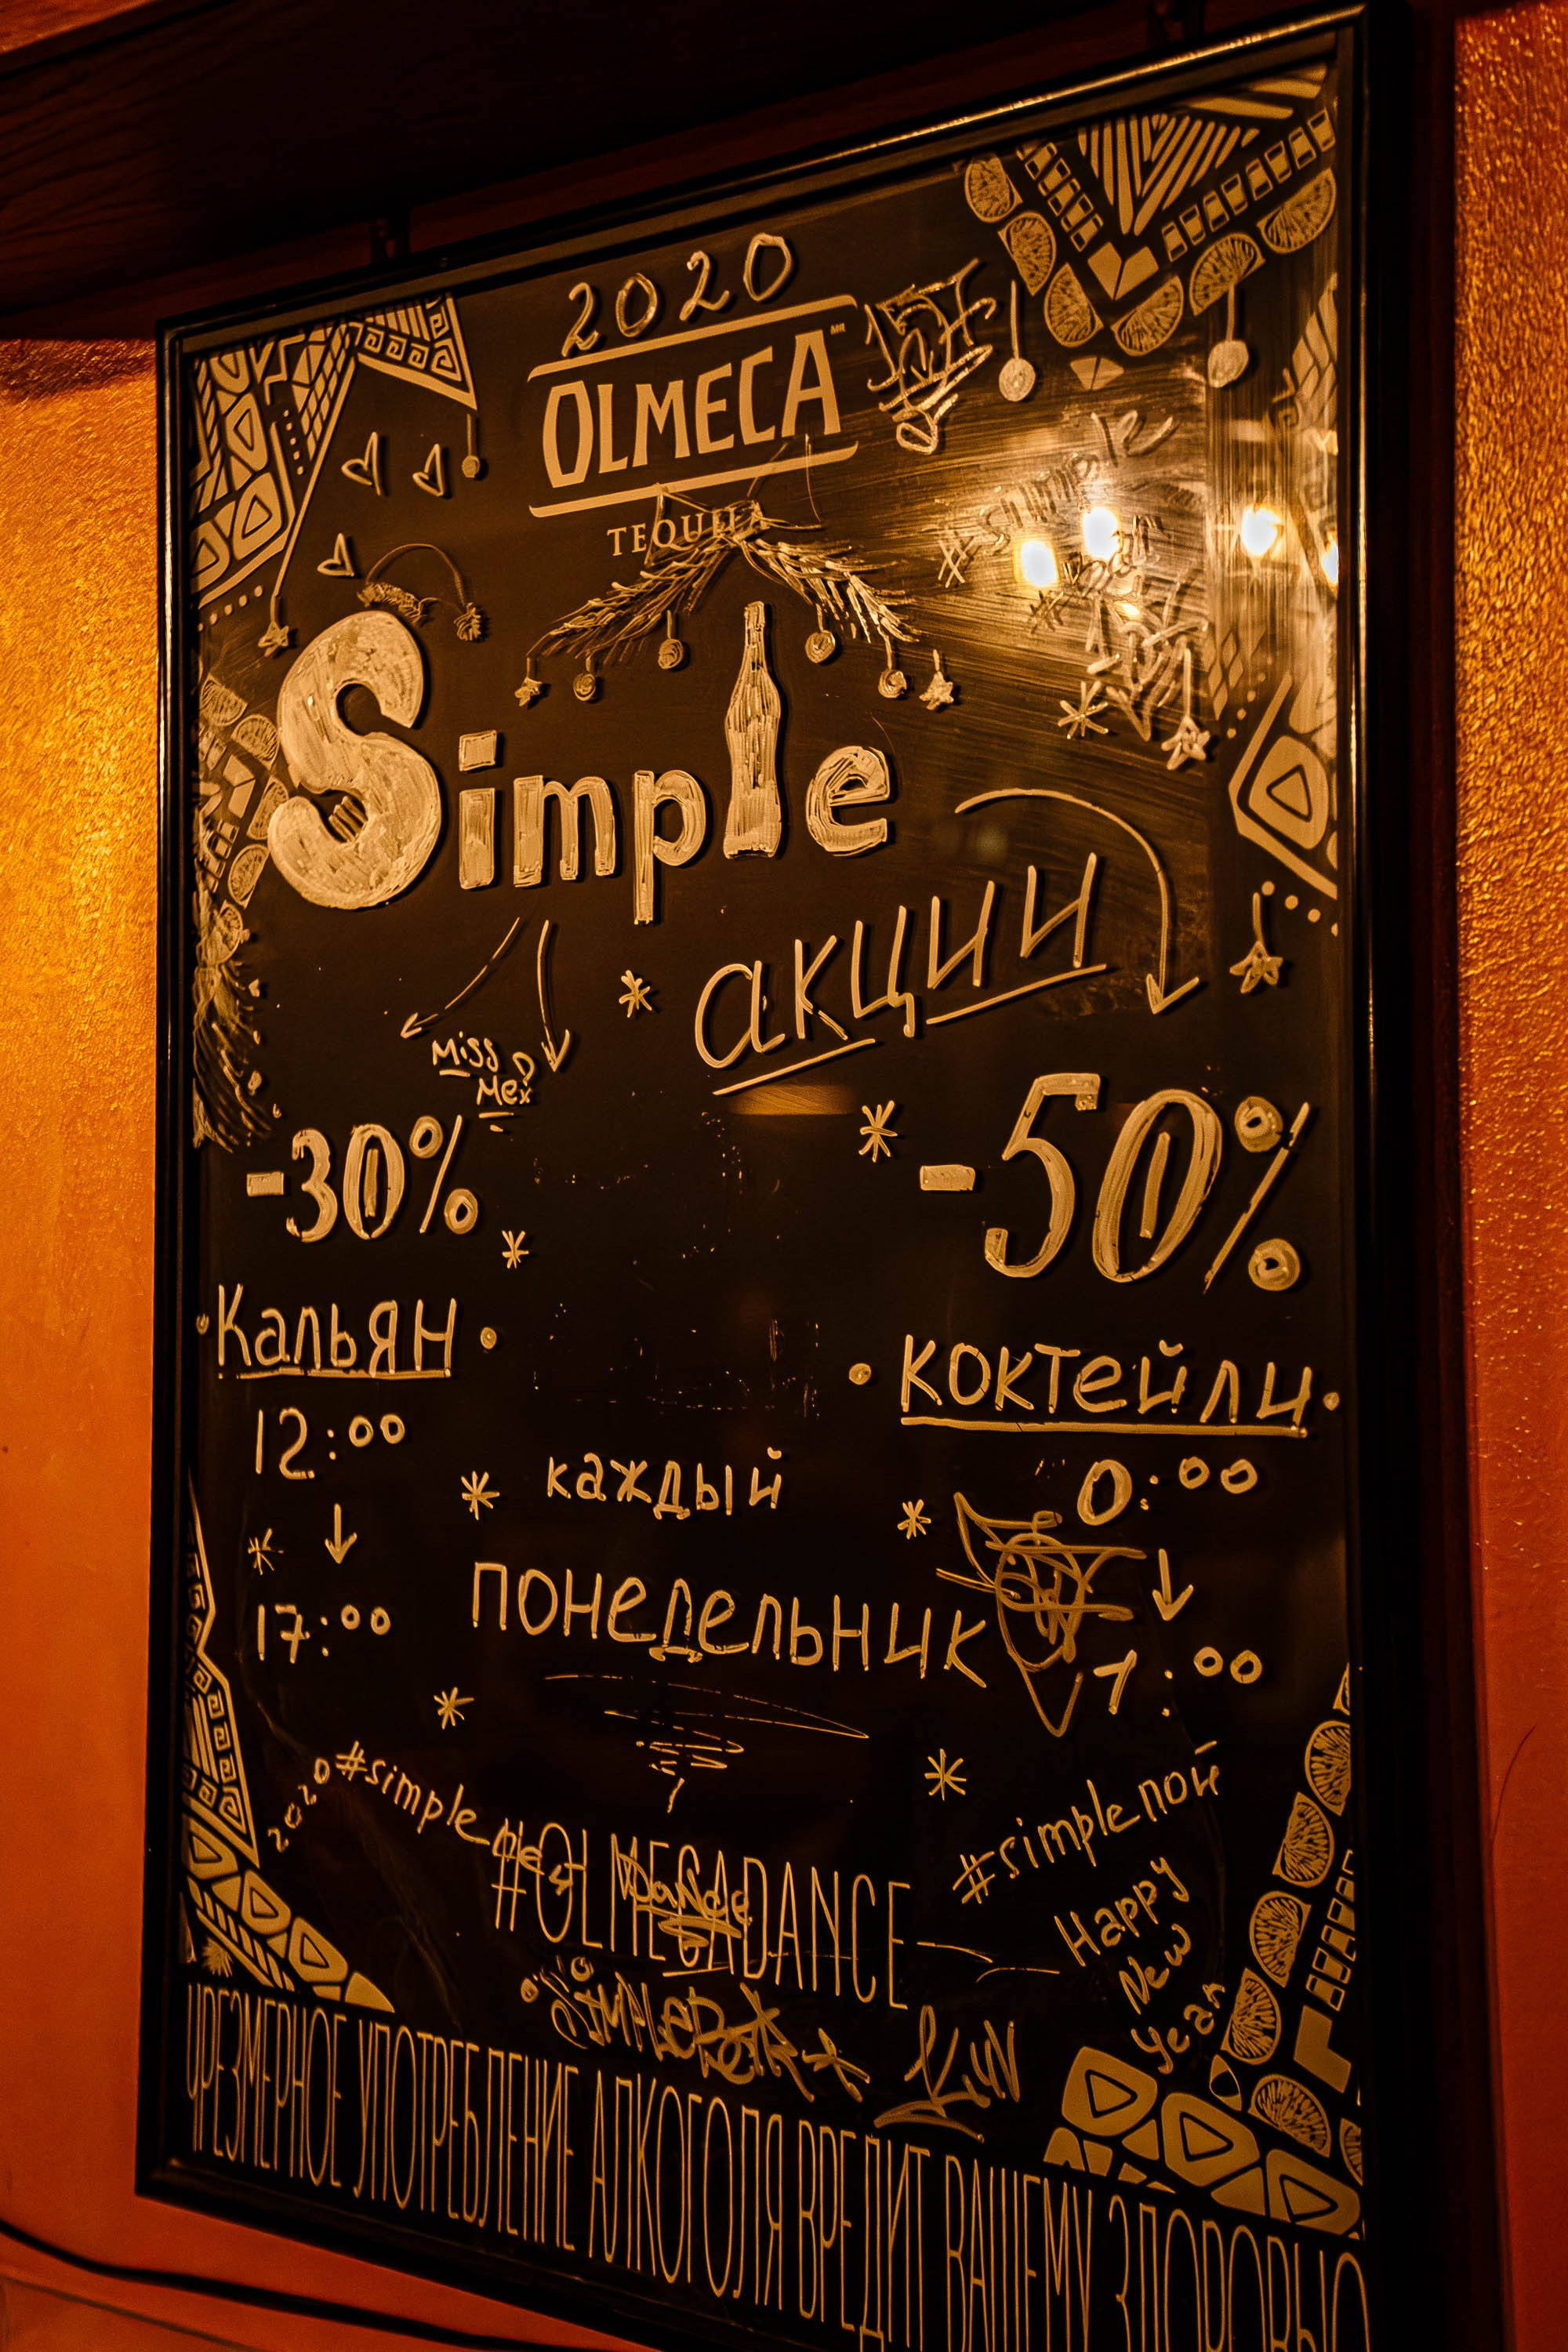 2020
OLMECA
TEQUILA
#simple
Simple
акции
Miss
Mex
-30%
-50%
Кальян
коктейли
12:00
0:00
каждый
понедельник
17:00
1:00
2020
#simple
#simpleпой
#OLMECADANCE
Dance
Happy
New
Year
ЧРЕЗМЕРНОЕ УПОТРЕБЛЕНИЕ АЛКОГОЛЯ ВРЕДИТ ВАШЕМУ ЗДОРОВЬЮ